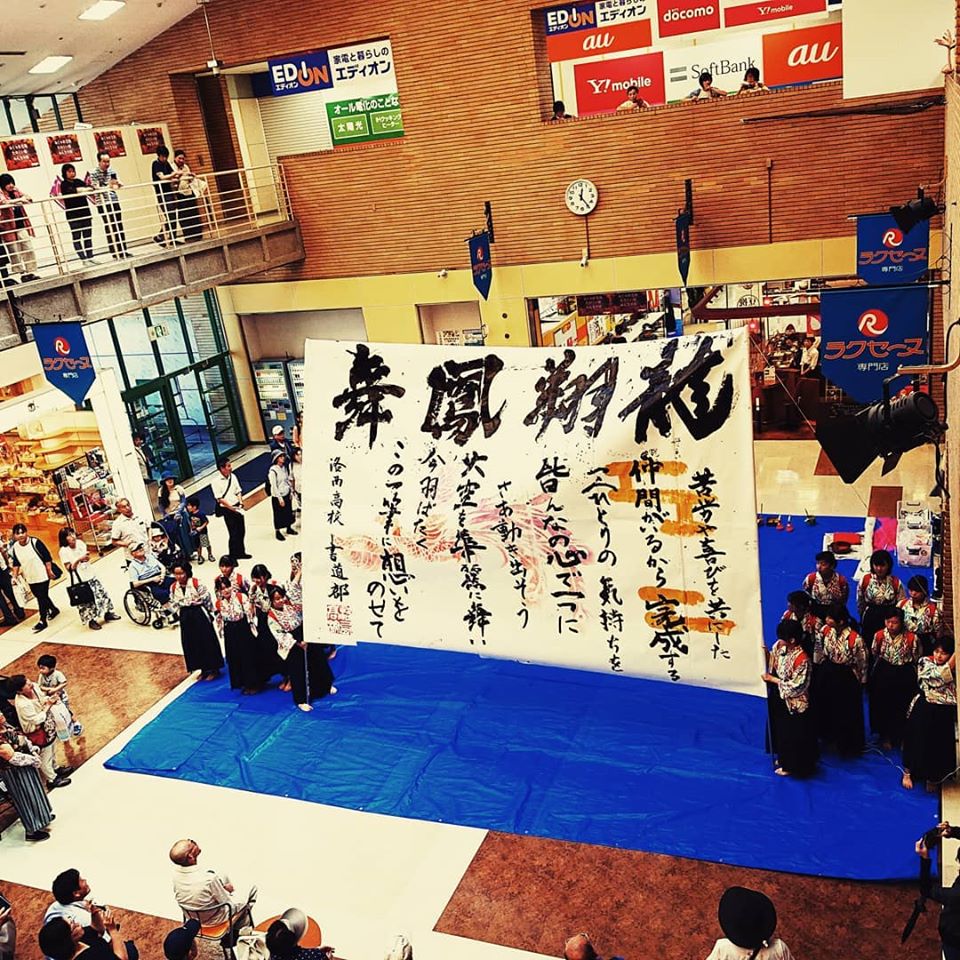 EDION
エディオン
家電と暮らしの
エディオン
オール電化のことな
太陽光
IHクッキング
ヒーター
EDION
エディオン
家電と暮らしの
エディオン
döcomo
Y!mobile
au
Y!mobile
SoftBank
au
R
ラクセーヌ
専門店
R
ラクセーヌ
専門店
R
ラクセーヌ
専門店
龍翔鳳舞
苦労や喜びを共にした
仲間がいるから完成する
一人ひとりの気持ちを
皆んなの心で一つに
さあ動き出そう
大空を華麗に舞い
今羽ばたく
この一筆に想いを
のせて
洛西高校 書道部